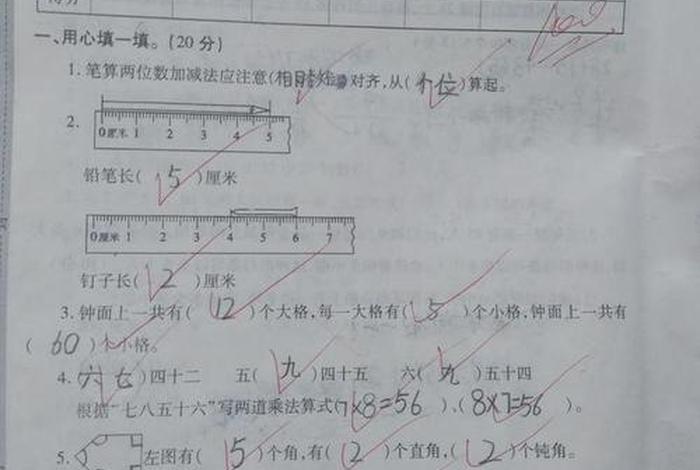 得分
100
一、用心填一填。(20分)
1.笔算两位数加减法应注意(相同数位对齐,从(个位)算起。
2.
0厘米 1 2 3 4 5
铅笔长( 5 )厘米
0厘米 1 2 3 4 5 6 7
钉子长( 2 )厘米
3.钟面上一共有( 12 )个大格,每一大格有( 5 )个小格,钟面上一共有
( 60 )个小格。
4.六七)四十二 五(九)四十五 六(九)五十四
根据“七八五十六”写两道乘法算式(7×8=56 )、(8×7=56 )。
5. 左图有( 5 )个角,有( 2 )个直角,( 2 )个钝角。